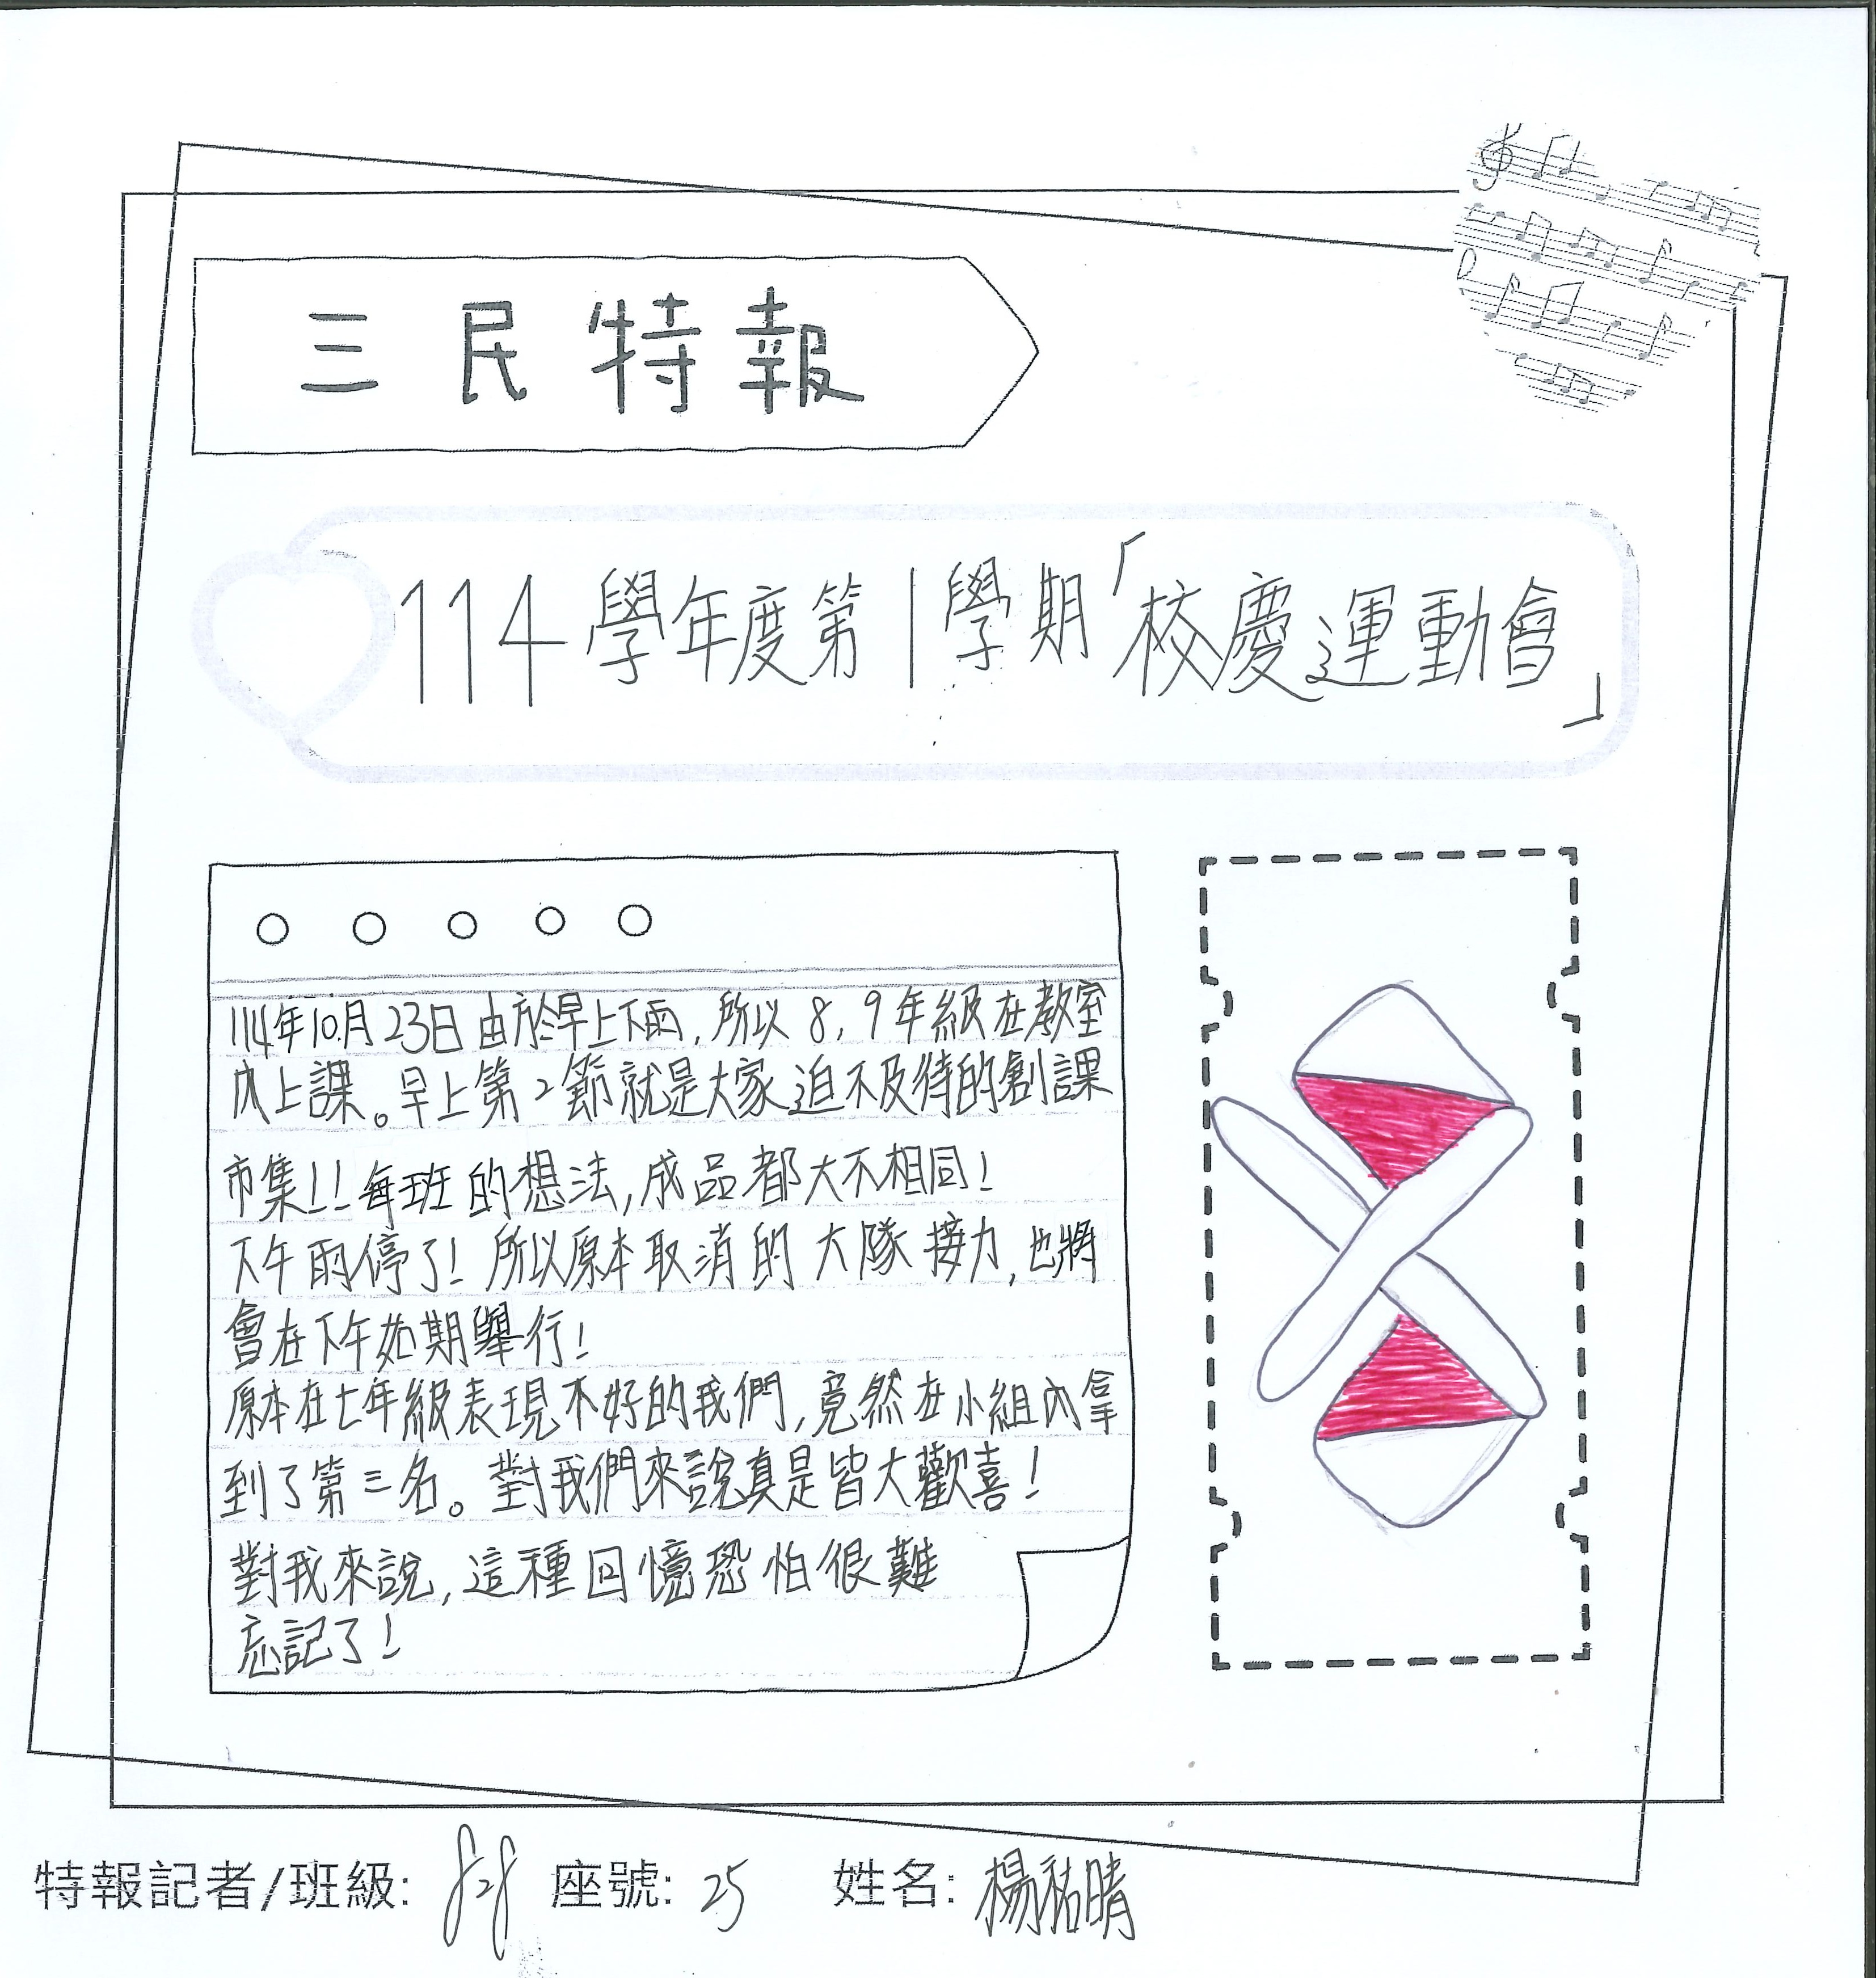 三民特報
114學年度第1學期「校慶運動會」
114年10月23日由於早上下雨,所以8,9年級在教室
內上課。早上第2節就是大家迫不及待的創課
市集!!每班的想法,成品都大不相同!
下午雨停了!所以原本取消的大隊接力,也將
會在下午如期舉行!
原本在七年級表現不好的我們,竟然在小組內拿
到了第三名。對我們來說真是皆大歡喜!
對我來說,這種回憶恐怕很難
忘記了!
特報記者/班級: 座號: 25 姓名: 楊祐晴